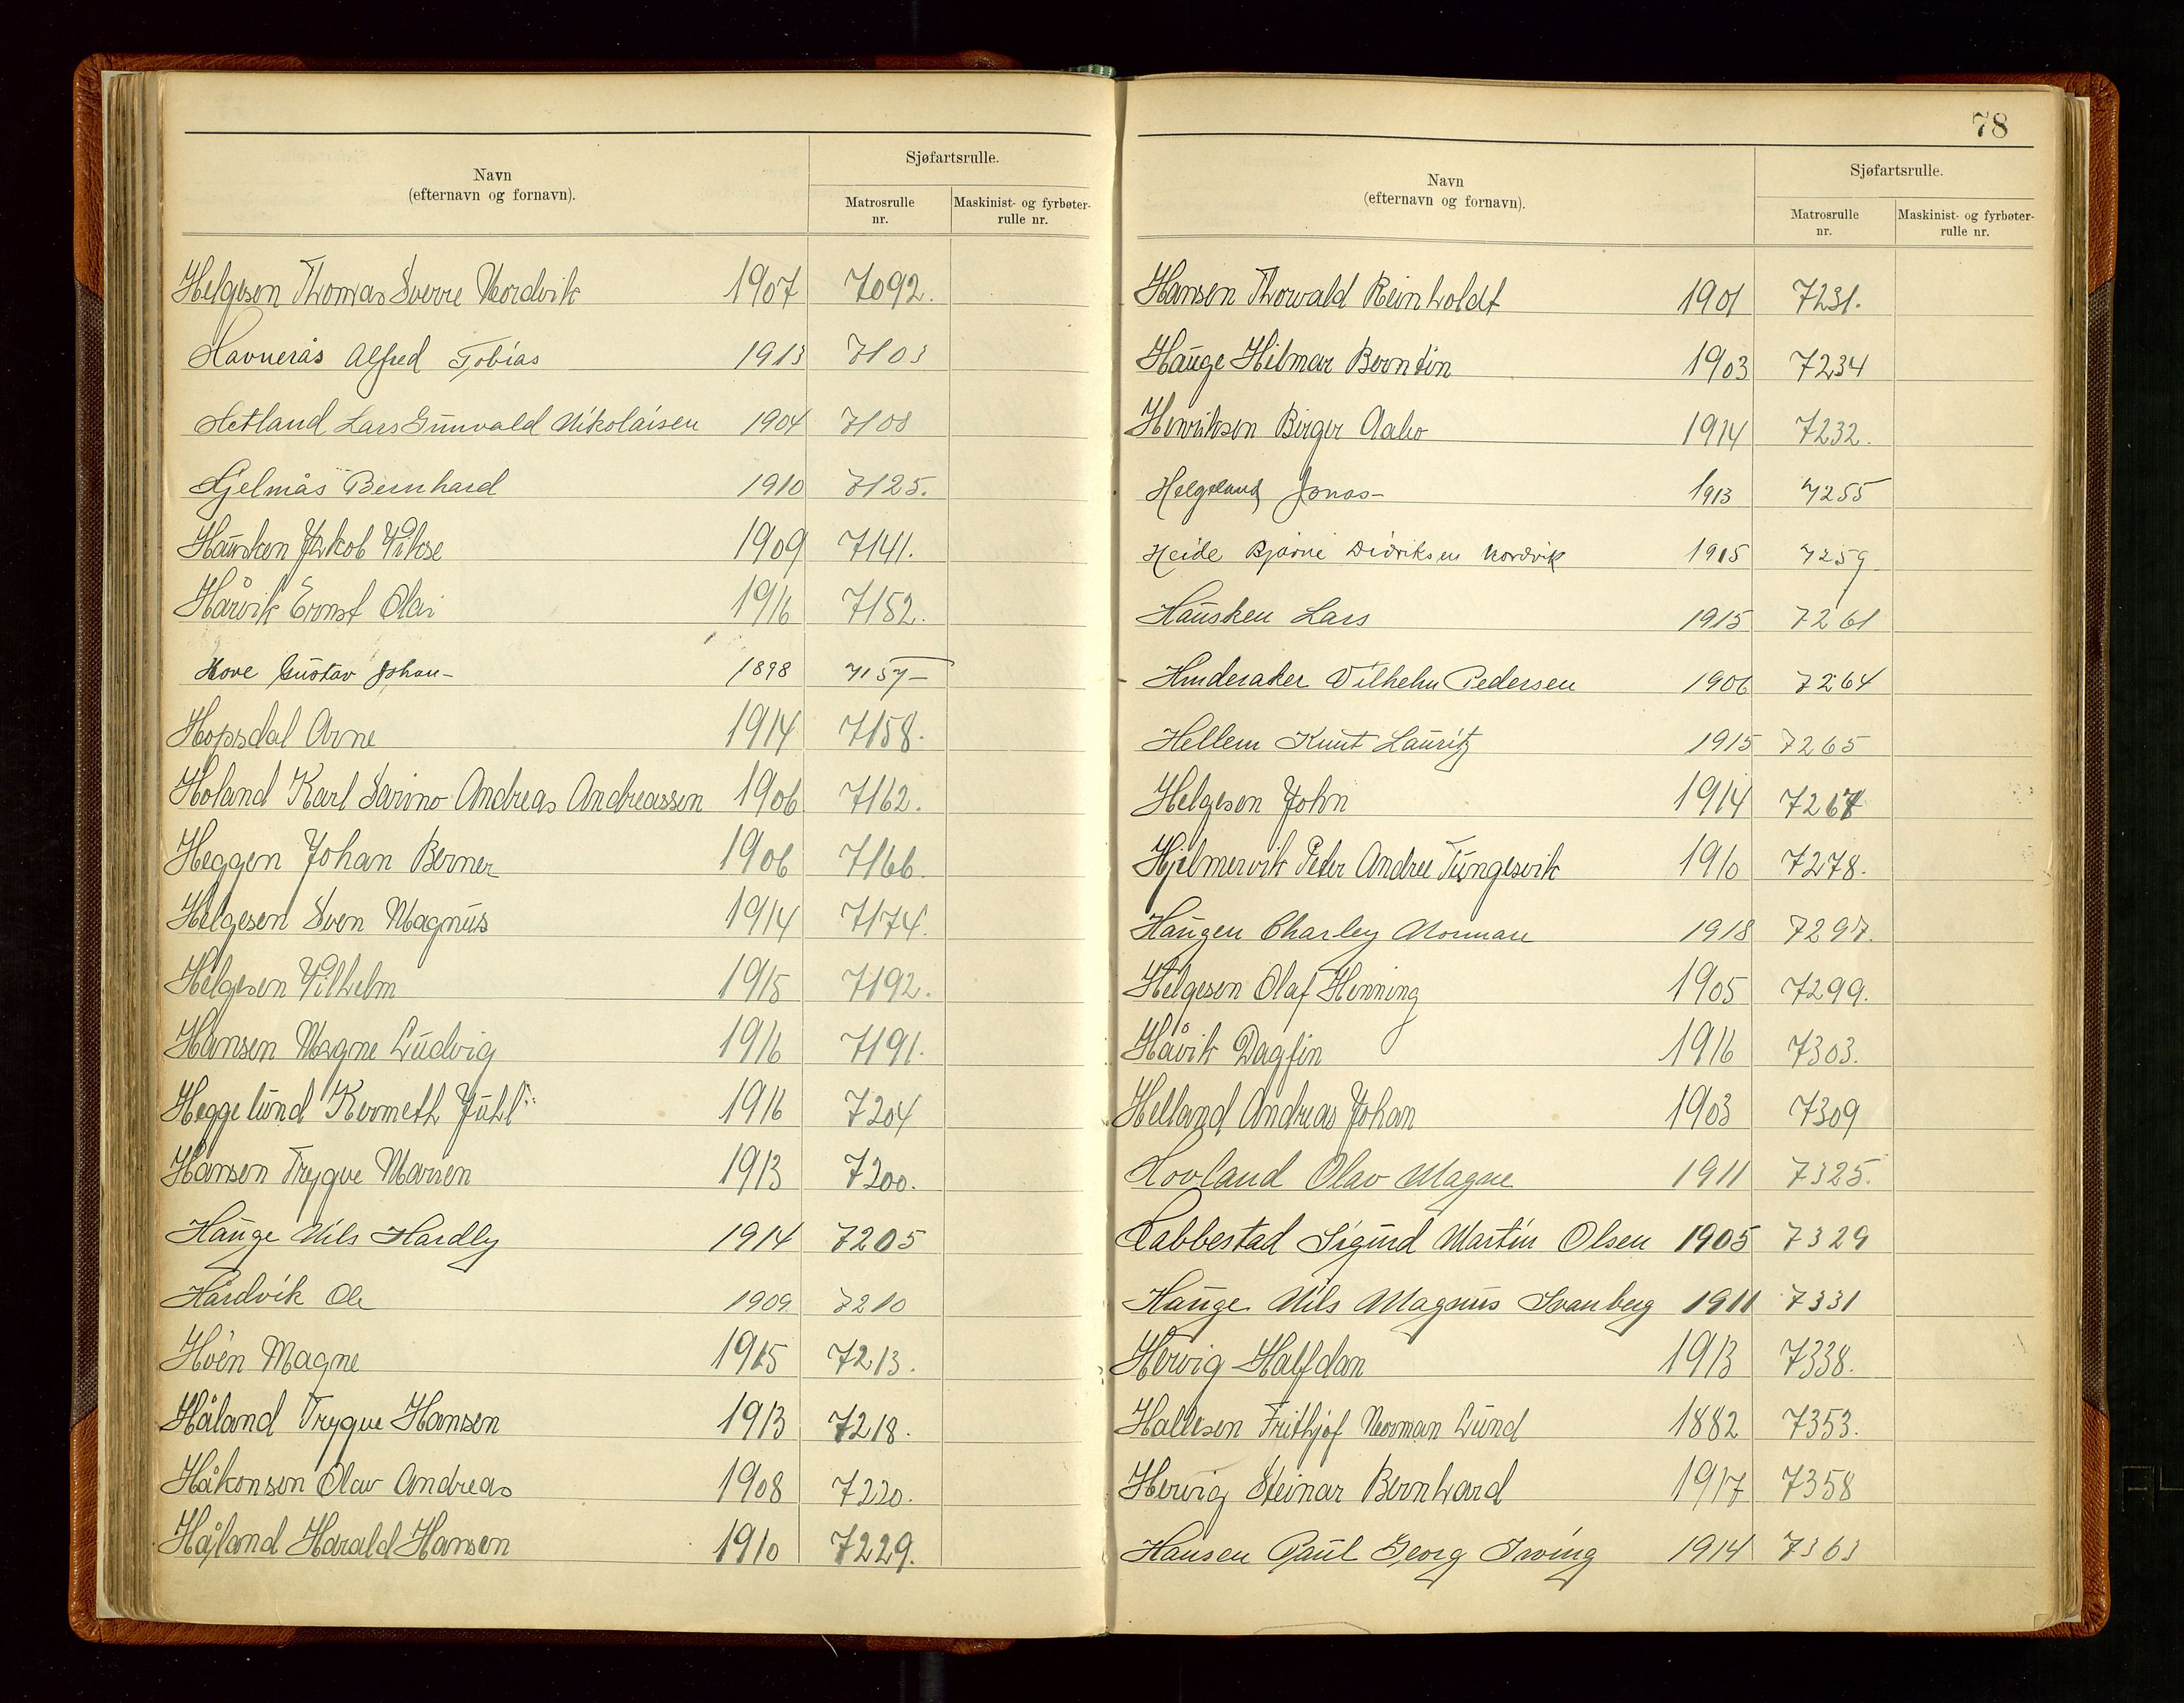 Navn
(efternavn og fornavn).
Sjøfartsrulle.
Matrosrulle nr.
Maskinist- og fyrbøter-rulle nr.
Helgesen Thomas Sverre Nordvik 1907 7092.
Havnerås Alfred Tobias 1913 7103
Hetland Lars Gunvald Nikolaisen 1904 7108
Hjelmås Bernhard 1910 7125.
Hausken Jakob Vikse 1909 7141.
Håvik Ernst Olai 1916 7152.
Hove Gustav Johan- 1898 7157-
Hopsdal Arne 1914 7158.
Holand Karl Sarino Andreas Andreassen 1906 7162.
Heggen Johan Berner 1906 7166.
Helgesen Sven Magnus 1914 7174.
Helgesen Vilhelm 1915 7192.
Hansen Magne Ludvig 1916 7191.
Heggelund Kermeth Juhl 1916 7204
Hansen Trygve 1913 7200.
Hauge Nils Hardly 1914 7205
Hardvik Ole 1909 7210
Höen Magne 1915 7213.
Håland Trygve Hansen 1913 7218.
Håkonsen Olav Andreas 1908 7220.
Håland Harald Hansen 1910 7229.
78
Navn
(efternavn og fornavn).
Sjøfartsrulle.
Matrosrulle nr.
Maskinist- og fyrbøter-rulle nr.
Hansen Thorvald Reinholdt 1901 7231.
Hauge Hilmar Berntin 1903 7234
Henriksen Birger 1914 7232.
Helgeland Jonas- 1913 7255
Heide Bjarne Didriksen Nordvik 1915 7259
Hausken Lars 1915 7261
Hinderaker Vilhelm Pedersen 1906 7264
Hellem Knut Lauritz 1915 7265
Helgesen John 1914 7267
Hjelmervik Peter Andree Tungesvik 1910 7278.
Haugen Charley Norman 1918 7297.
Helgesen Olaf Henning 1905 7299.
Håvik Dagfin 1916 7303.
Helland Andreas Johan 1903 7309
Hovland Olav Magne 1911 7325.
Rabbestad Sigurd Martin Olsen 1905 7329
Hauge Nils Magnus Svanberg 1911 7331
Hervig Halfdan 1913 7338.
Hallesen Frithjof Norman Lund 1882 7353.
Hervig Steinar Bernhard 1917 7358
Hansen Paul Georg Irving 1914 7363